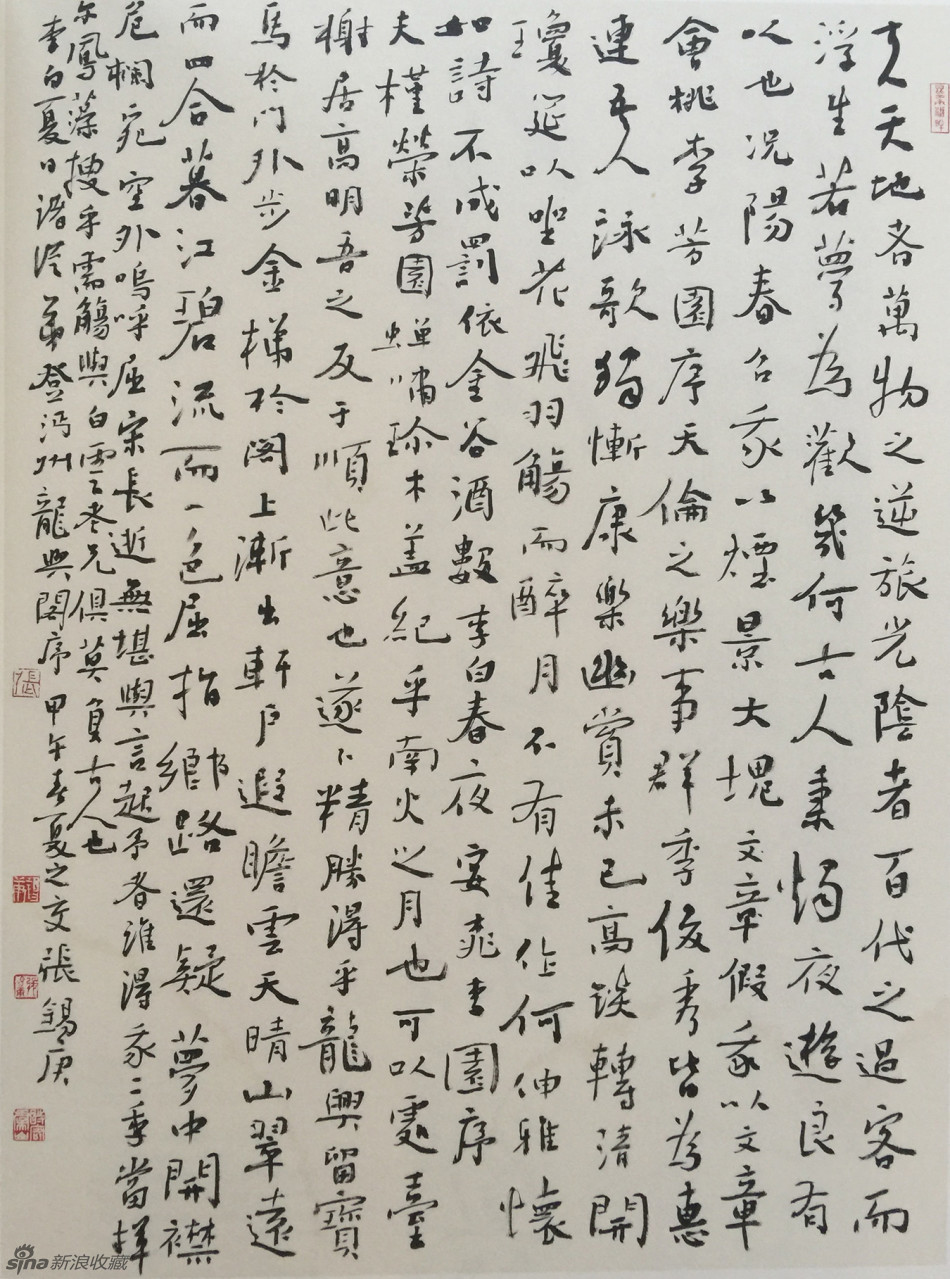 夫天地者萬物之逆旅光陰者百代之過客而
浮生若夢為歡幾何古人秉燭夜遊良有
以也況陽春召我以煙景大塊文章假我以文章
會桃李芳園序天倫之樂事群季俊秀皆為惠
連吾人詠歌獨慚康樂幽賞未已高談轉清開
瓊筵以坐花飛羽觴而醉月不有佳作何伸雅懷
如詩不成罰依金谷酒數李白春夜宴桃李園序
夫槿榮芳園蟬嘯珍木蓋紀乎南火之月也可以處臺
榭居高明吾之友于順此意也遂卜精勝得乎龍興留寶
馬於門外步金梯於閣上漸出軒戶遐瞻雲天晴山翠遠
而四合暮江碧流而一色屈指鄉路還疑夢中開襟
危欄宛空外嗚呼屈宋長逝無堪與言起予者誰得我二季當揮
尔鳳藻乎觴與白雲老兄俱莫負古人也
李白夏日諸從弟登沔州龍興閣序甲午春夏之交張錫庚
張
sina新浪收藏